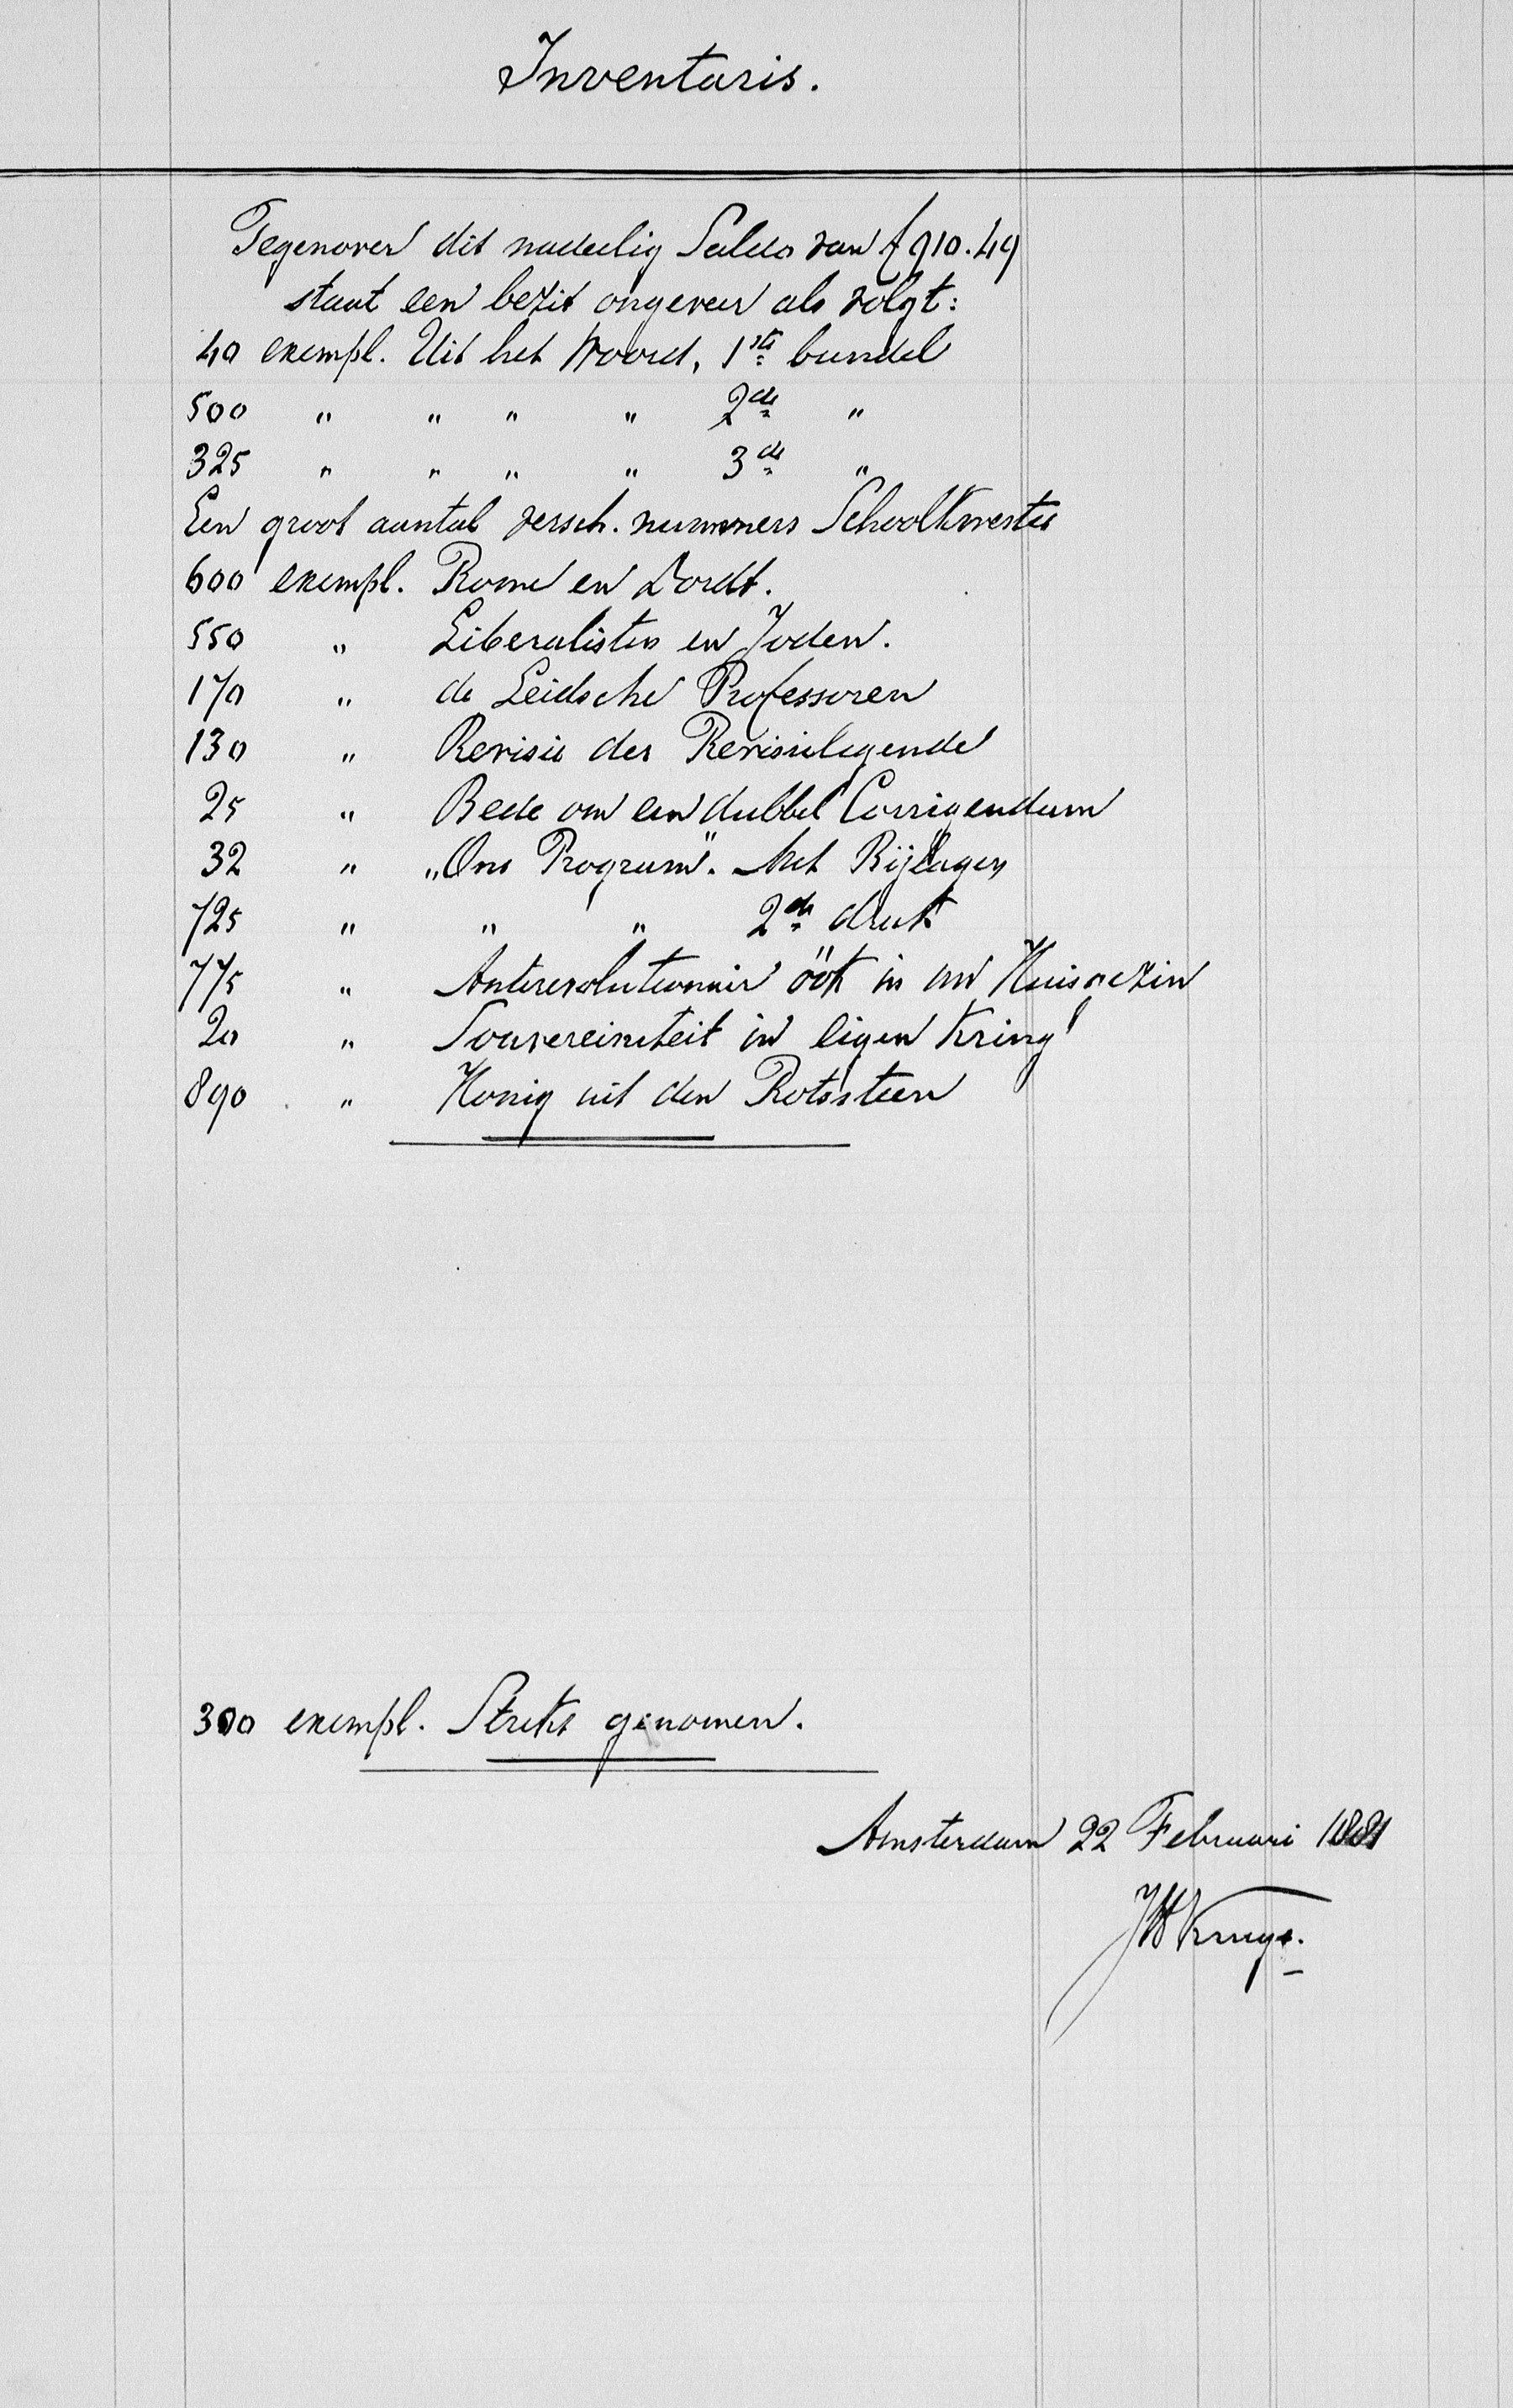 Inventaris.
Tegenover dit nadeelig Saldo van f 910.49
staat een bezit ongeveer als volgt:
40 exempl. Uit het Woord, 1ste bundel
500 " " " " 2de "
325 " " " " 3de "
Een groot aantal versch. nummers Schoolkwestie
600 exempl. Rome en Dordt.
550 " Liberalisten en Joden.
170 " de Leidsche Professoren
130 " Revisie der Revisielegende
25 " Bede om een dubbel Corrigendum
32 " „Ons Program". Met Bijlagen
725 " " " 2de druk
775 " Antirevolutionair óók in uw Huisgezin
20 " Souvereiniteit in eigen Kring
890 " Honig uit den Rotssteen
300 exempl. Strikt genomen.
Amsterdam 22 Februari 1881
JH Kruyt.